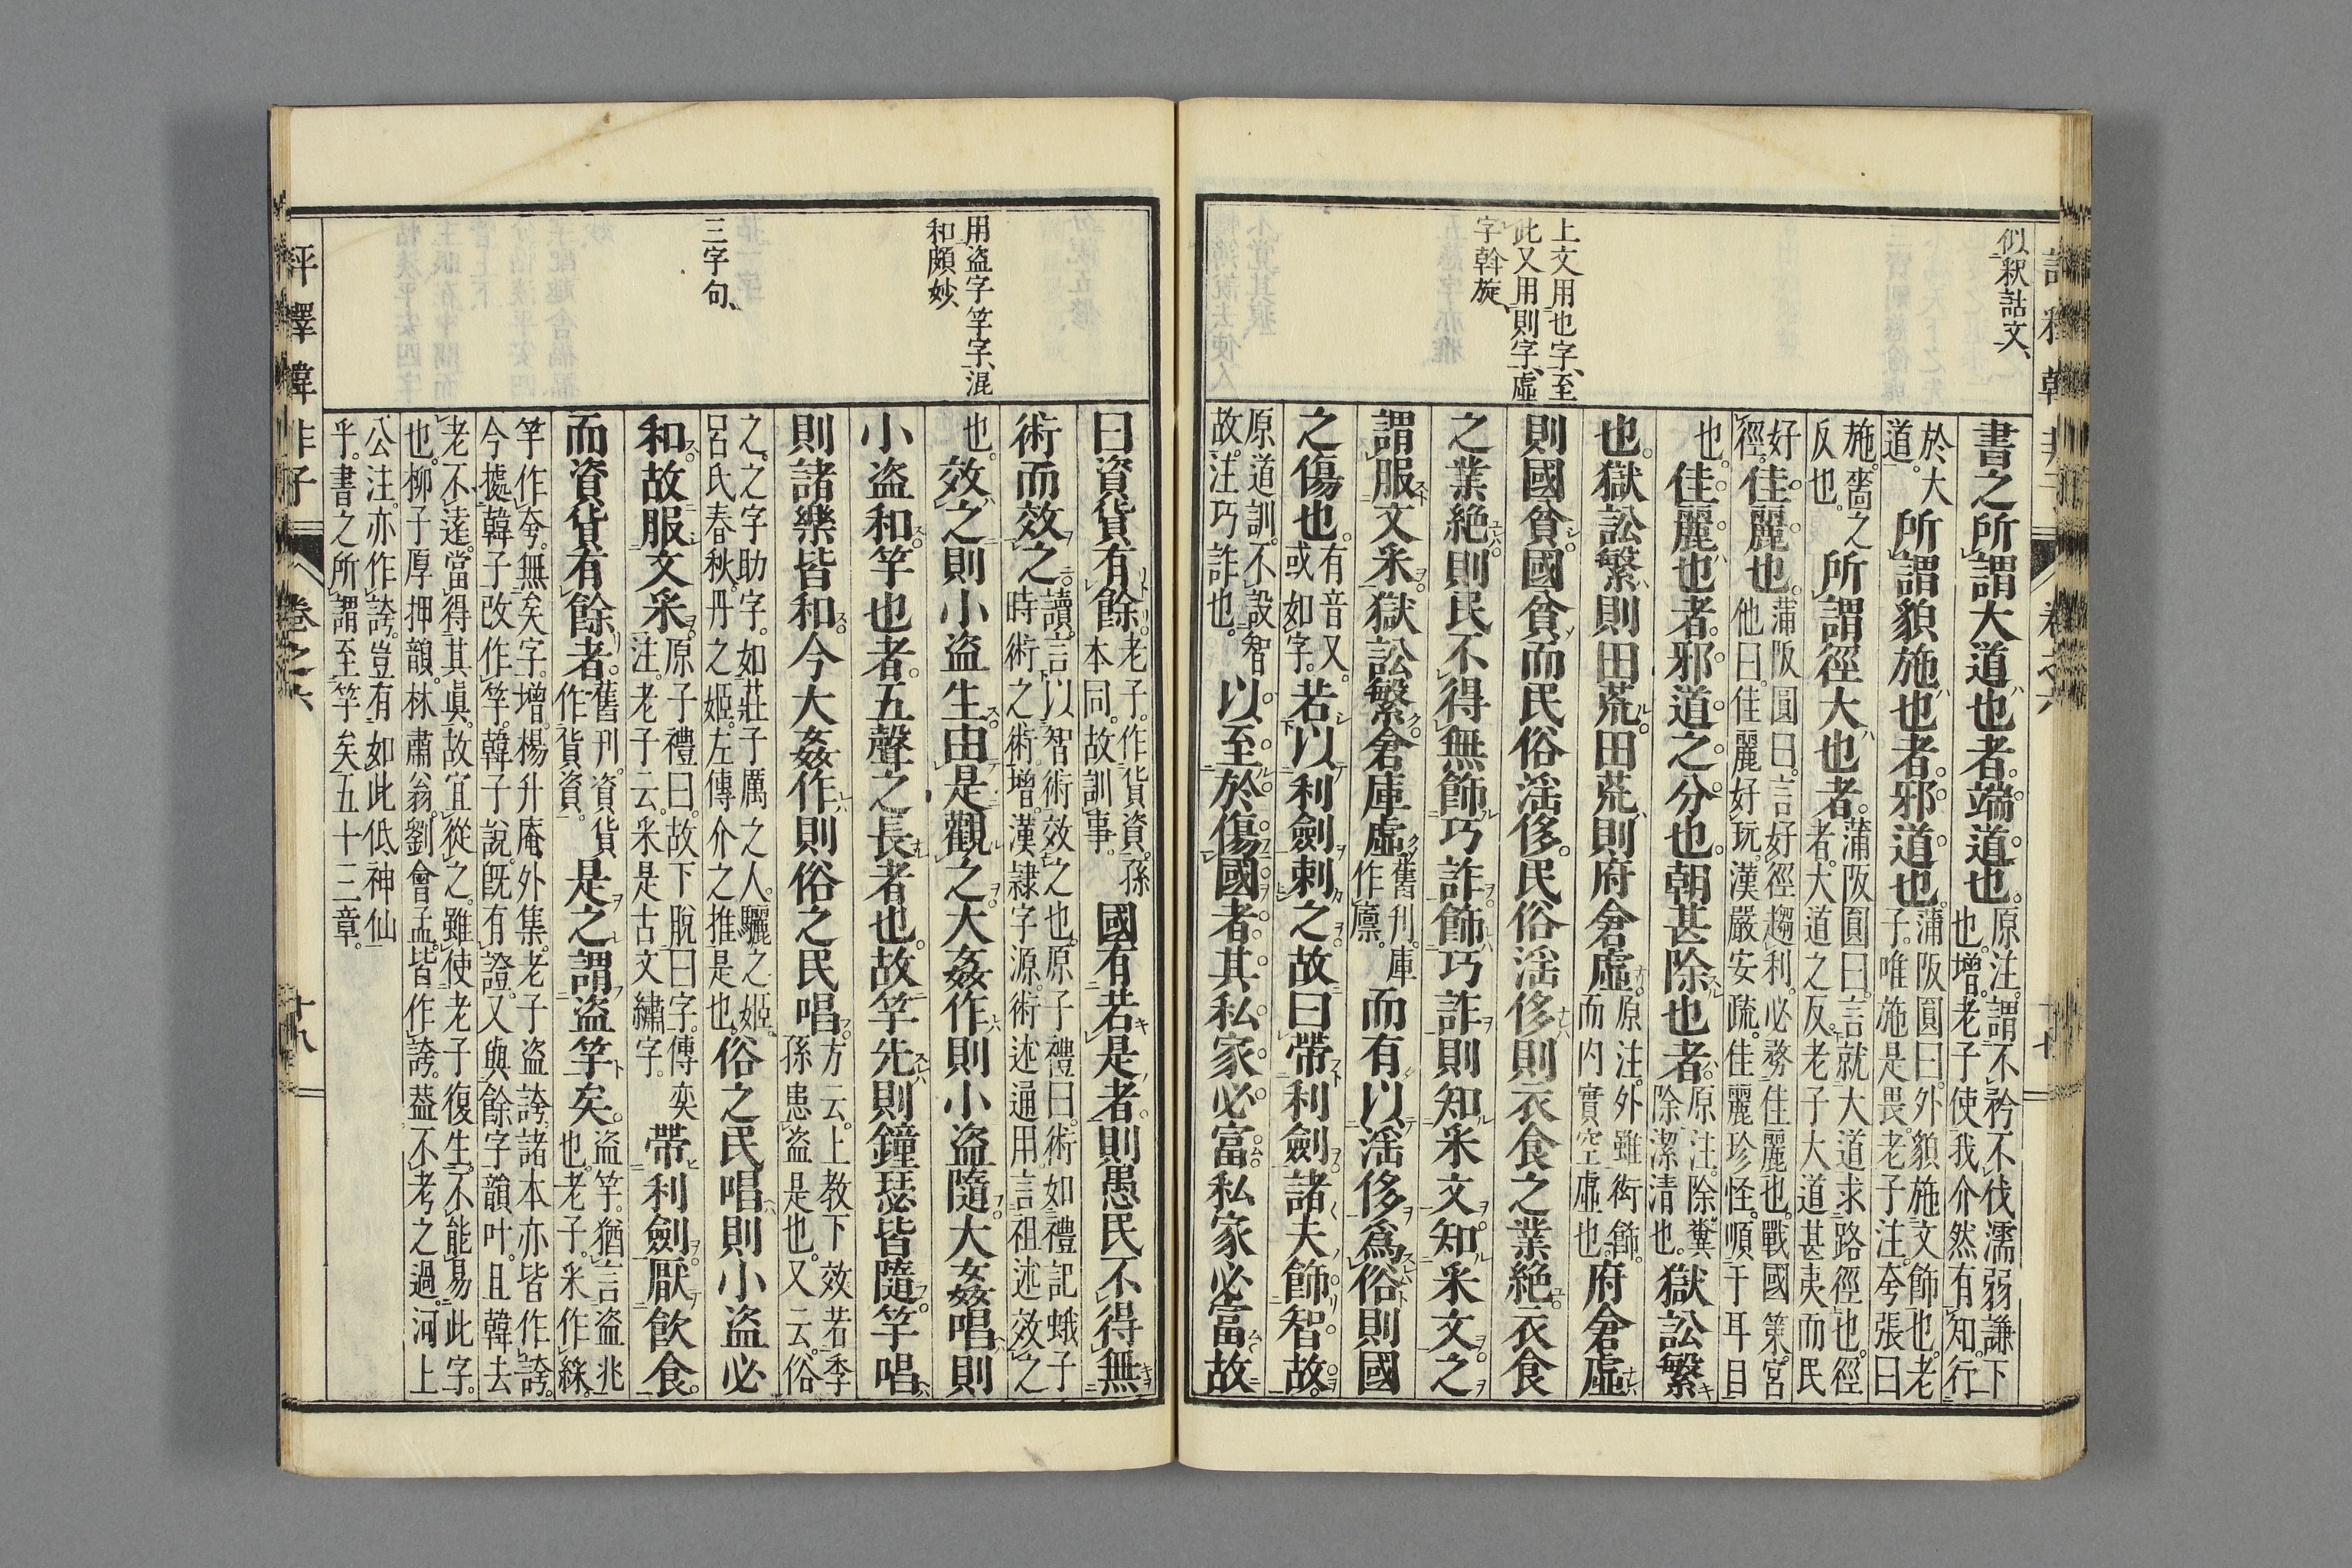 似釈詁文
上文用也字至
此又用則字虛
字斡旋
書之所謂大道也者端道也原注謂不衿不伐濡弱謙下
也增老子使我介然有知行
於大
道所謂貌施也者邪道也蒲阪圓曰外貌施文飾也老
子唯施是畏老子注夸張曰
施嗇之
反也所謂徑大也者蒲阪圓曰言就大道求路徑也徑
者大道之反老子大道甚夷而民
好
徑佳麗也蒲阪圓曰言好徑趨利必務佳麗也戰國策宮
他曰佳麗好玩漢嚴安疏佳麗珍怪順于耳目
也佳麗也者邪道之分也朝甚除也者原注除糞
除潔清也獄訟繁
也獄訟繁則田荒田荒則府倉虛原注外雖衒飾
而内實空虛也府倉虛
則國貧國貧而民俗淫侈民俗淫侈則衣食之業絕衣食
之業絕則民不得無飾巧詐飾巧詐則知采文知采文之
謂服文采獄訟繁倉庫虛舊刊庫
作廩而有以淫侈爲俗則國
之傷也有音又
或如字若以利劍刺之故曰帶利劍諸夫飾智故
原道訓不設智
故注巧詐也以至於傷國者其私家必富私家必富故
評釋韓非子
卷之六
十七
用盗字竽字混
和頗妙
三字句
曰資貨有餘老子作貨資孫
本同故訓事國有若是者則愚民不得無
術而效之讀言以智術效之也原子禮曰術如禮記蛾子
時術之術增漢隷字源術述通用言祖述效之
也效之則小盗生由是觀之大姦作則小盗隨大姦唱則
小盗和竽也者五聲之長者也故竽先則鐘瑟皆隨竽唱
則諸樂皆和今大姦作則俗之民唱方云上教下效若季
孫患盗是也又云俗
之之字助字如莊子厲之人驪之姬
呂氏春秋丹之姬左傳介之推是也俗之民唱則小盗必
和故服文采原子禮曰故下脫曰字傳奕
注老子云采是古文繡字帶利劍厭飲食
而資貨有餘者舊刊資貨
作貨資是之謂盗竽矣盗竽猶言盗兆
也老子采作綵
竽作夸無矣字增楊升庵外集老子盗誇諸本亦皆作誇
今據韓子改作竽韓子說既有證又與餘字韻叶且韓去
老不遠當得其眞故宜從之雖使老子復生不能易此字
也柳子厚押韻林肅翁劉會孟皆作誇葢不考之過河上
公注亦作誇豈有如此低神仙
乎書之所謂至竽矣五十三章
評釋韓非子
卷之六
十八